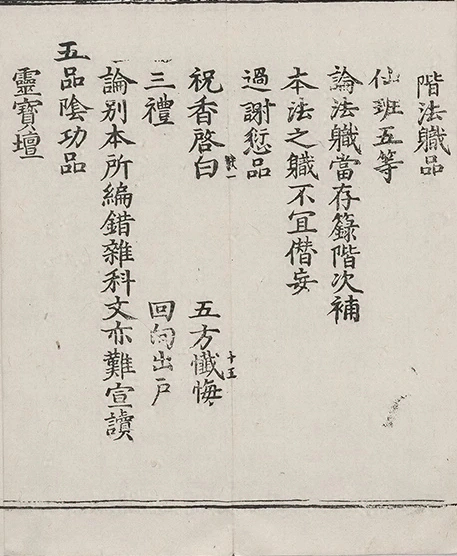 階法軄品
仙班五等
論法軄當存籙階次補
本法之軄不冝僭妄
過謝愆品
祝香啓白　五方懺悔
三禮　回向出户
論别本所編錯雜科文亦難宣讀
五品陰功品
靈寶壇